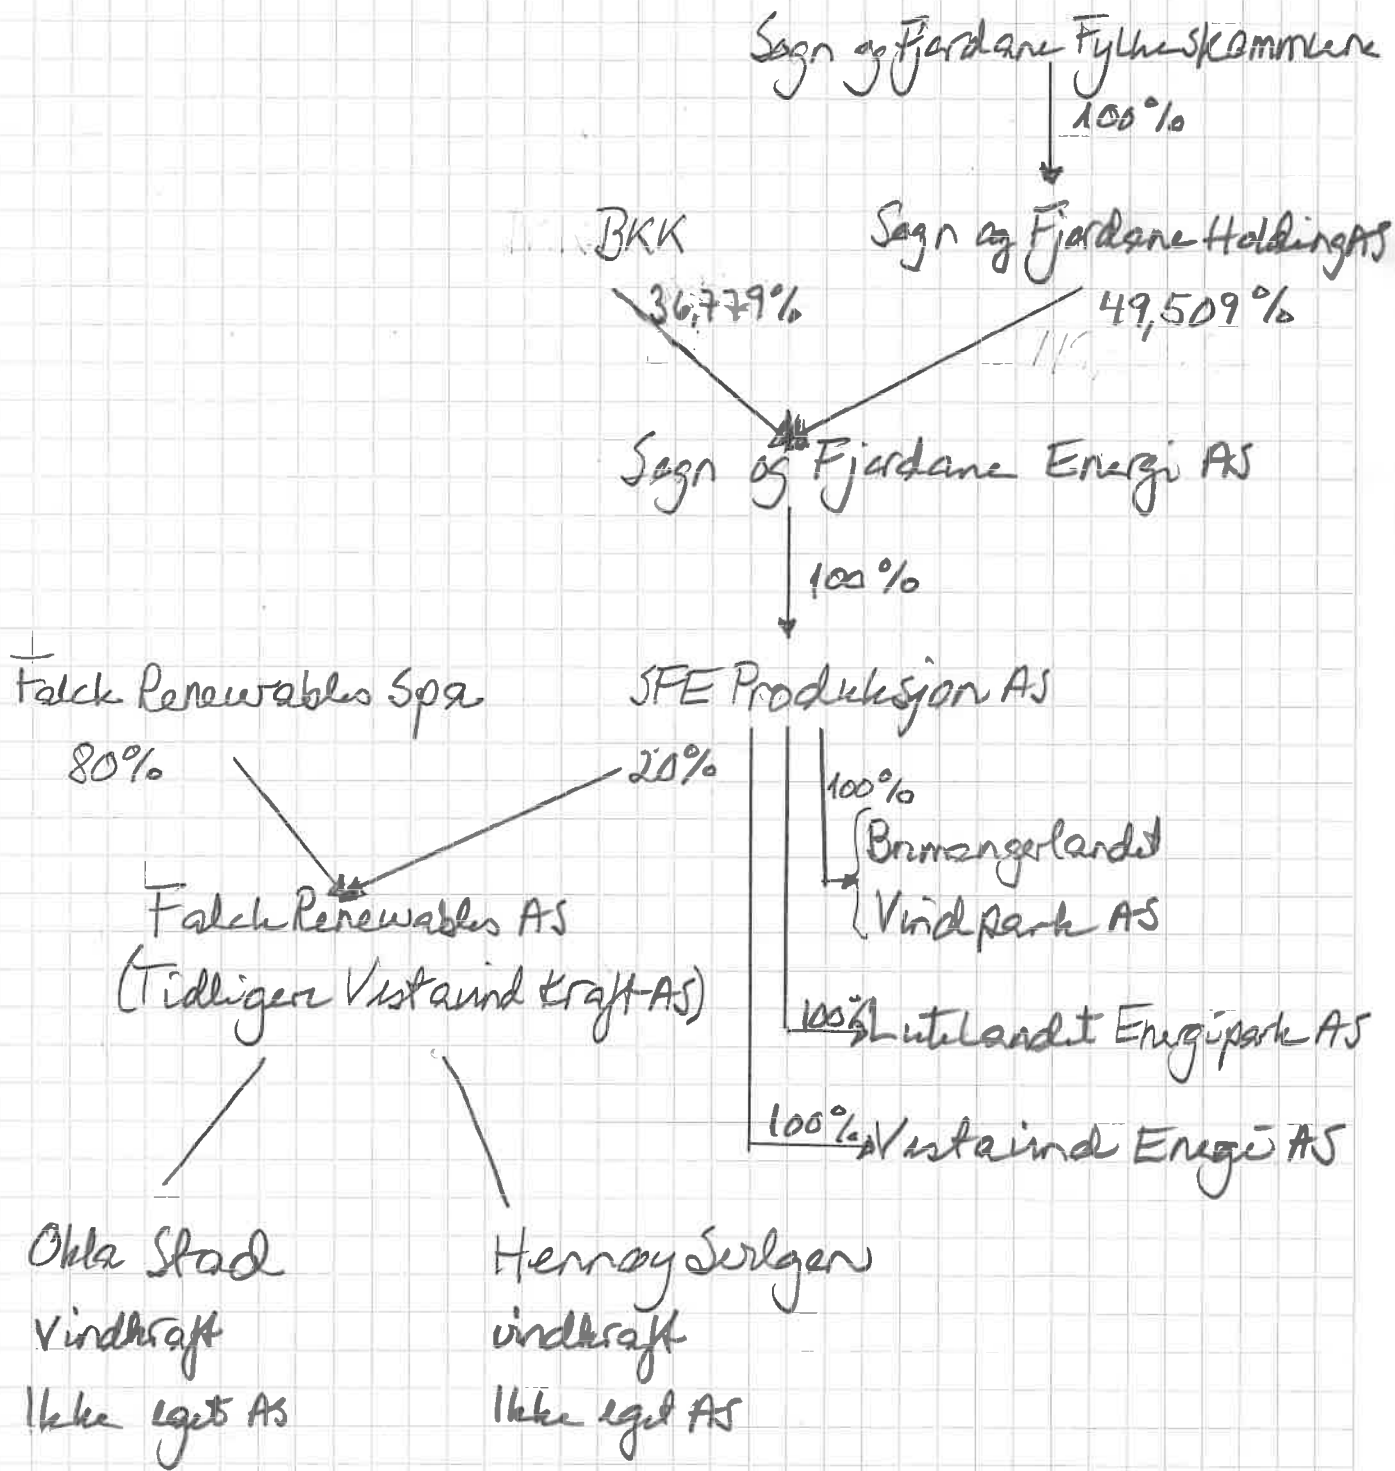 Sogn og Fjordane Fylkeskommune
100%
BKK
Sogn og Fjordane Holding AS
36,779%
49,509%
Sogn og Fjordane Energi AS
100%
Falck Renewables Spa
SFE Produksjon AS
80%
20%
100%
Bremangerlandet
Vindpark AS
Falck Renewables AS
(Tidligere Vestavind Kraft AS)
100%
Lutelandet Energipark AS
100%
Vestavind Energi AS
Okla Stad
Vindkraft
Ikke eget AS
Hennøy Seilgen
vindkraft
Ikke eget AS